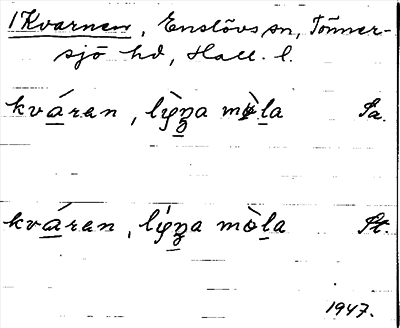 1 Kvarnen, Enslövs sn, Tönner-
sjö hd, Hall. l.
kváran, lỳŋa mòla Sa.
kváran, lýŋa mòla St.
1947.